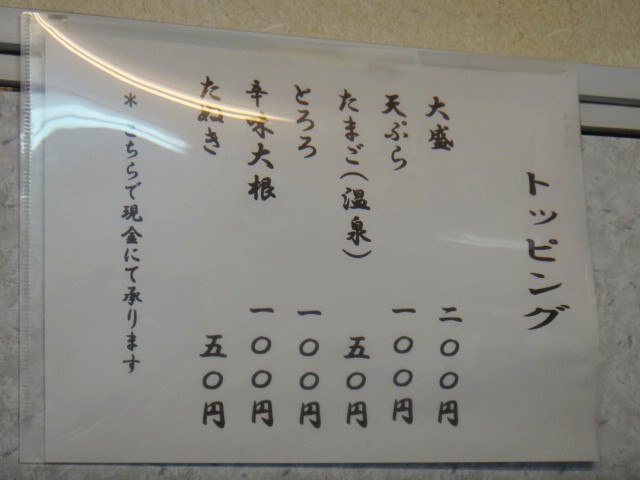 トッピング
大盛 二〇〇円
天ぷら 一〇〇円
たまご(温泉) 五〇円
とろろ 一〇〇円
辛味大根 一〇〇円
たぬき 五〇円
* こちらで現金にて承ります